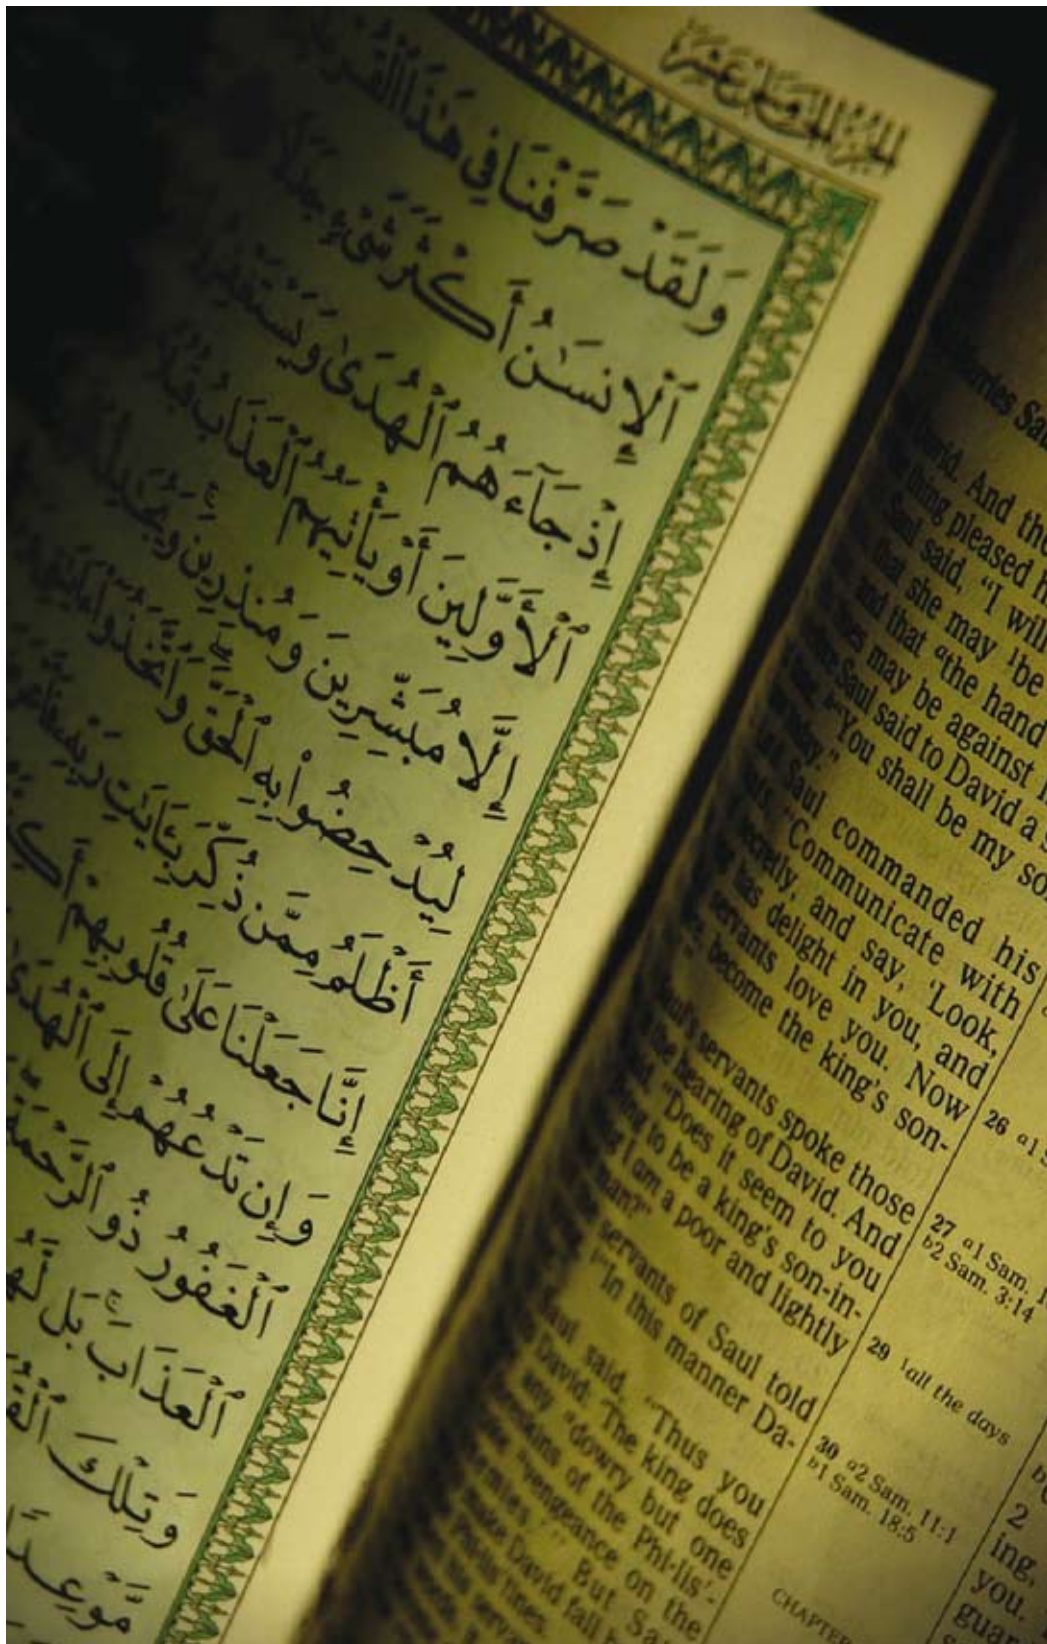 الجزء الخامس عشر
وَلَقَدْ صَرَّفْنَا فِي هَٰذَا الْقُرْءَانِ
ٱلْإِنسَٰنُ أَكْثَرَ شَىْءٍ جَدَلًا
إِذْ جَآءَهُمُ ٱلْهُدَىٰ وَيَسْتَغْفِرُوا
ٱلْأَوَّلِينَ أَوْ يَأْتِيَهُمُ ٱلْعَذَابُ قُبُلًا
إِلَّا مُبَشِّرِينَ وَمُنذِرِينَ وَيُجَٰدِلُ
لِيُدْحِضُوا۟ بِهِ ٱلْحَقَّ وَٱتَّخَذُوٓا۟ ءَايَٰتِى
أَظْلَمُ مِمَّن ذُكِّرَ بِـَٔايَٰتِ رَبِّهِۦ فَأَعْرَضَ
إِنَّا جَعَلْنَا عَلَىٰ قُلُوبِهِمْ أَكِنَّةً
وَإِن تَدْعُهُمْ إِلَى ٱلْهُدَىٰ
ٱلْغَفُورُ ذُو ٱلرَّحْمَةِ
ٱلْعَذَابَ بَل لَّهُم
وَتِلْكَ ٱلْقُ
مَّوْعِدًا
Marries Sau
David. And the
thing pleased h
Saul said, "I will
that she may ¹be
and that ᵃthe hand
may be against h
Saul said to David a s
"You shall be my so
today."
Saul commanded his
"Communicate with
secretly, and say, 'Look,
has delight in you, and
servants love you. Now
become the king's son-
Saul's servants spoke those
the hearing of David. And
"Does it seem to you
to be a king's son-in-
I am a poor and lightly
man?"
servants of Saul told
"In this manner Da-
Saul said, "Thus you
David: 'The king does
any ᵃdowry but one
of the Phi·lis'-
vengeance on the
But Sau
make David fall b
Philis'tines.
his serva
26 ᵃ1 S
27 ᵃ1 Sam. 1
ᵇ2 Sam. 3:14
29 ¹all the days
30 ᵃ2 Sam. 11:1
ᵇ1 Sam. 18:5
CHAPTER
2
ing,
you.
guar